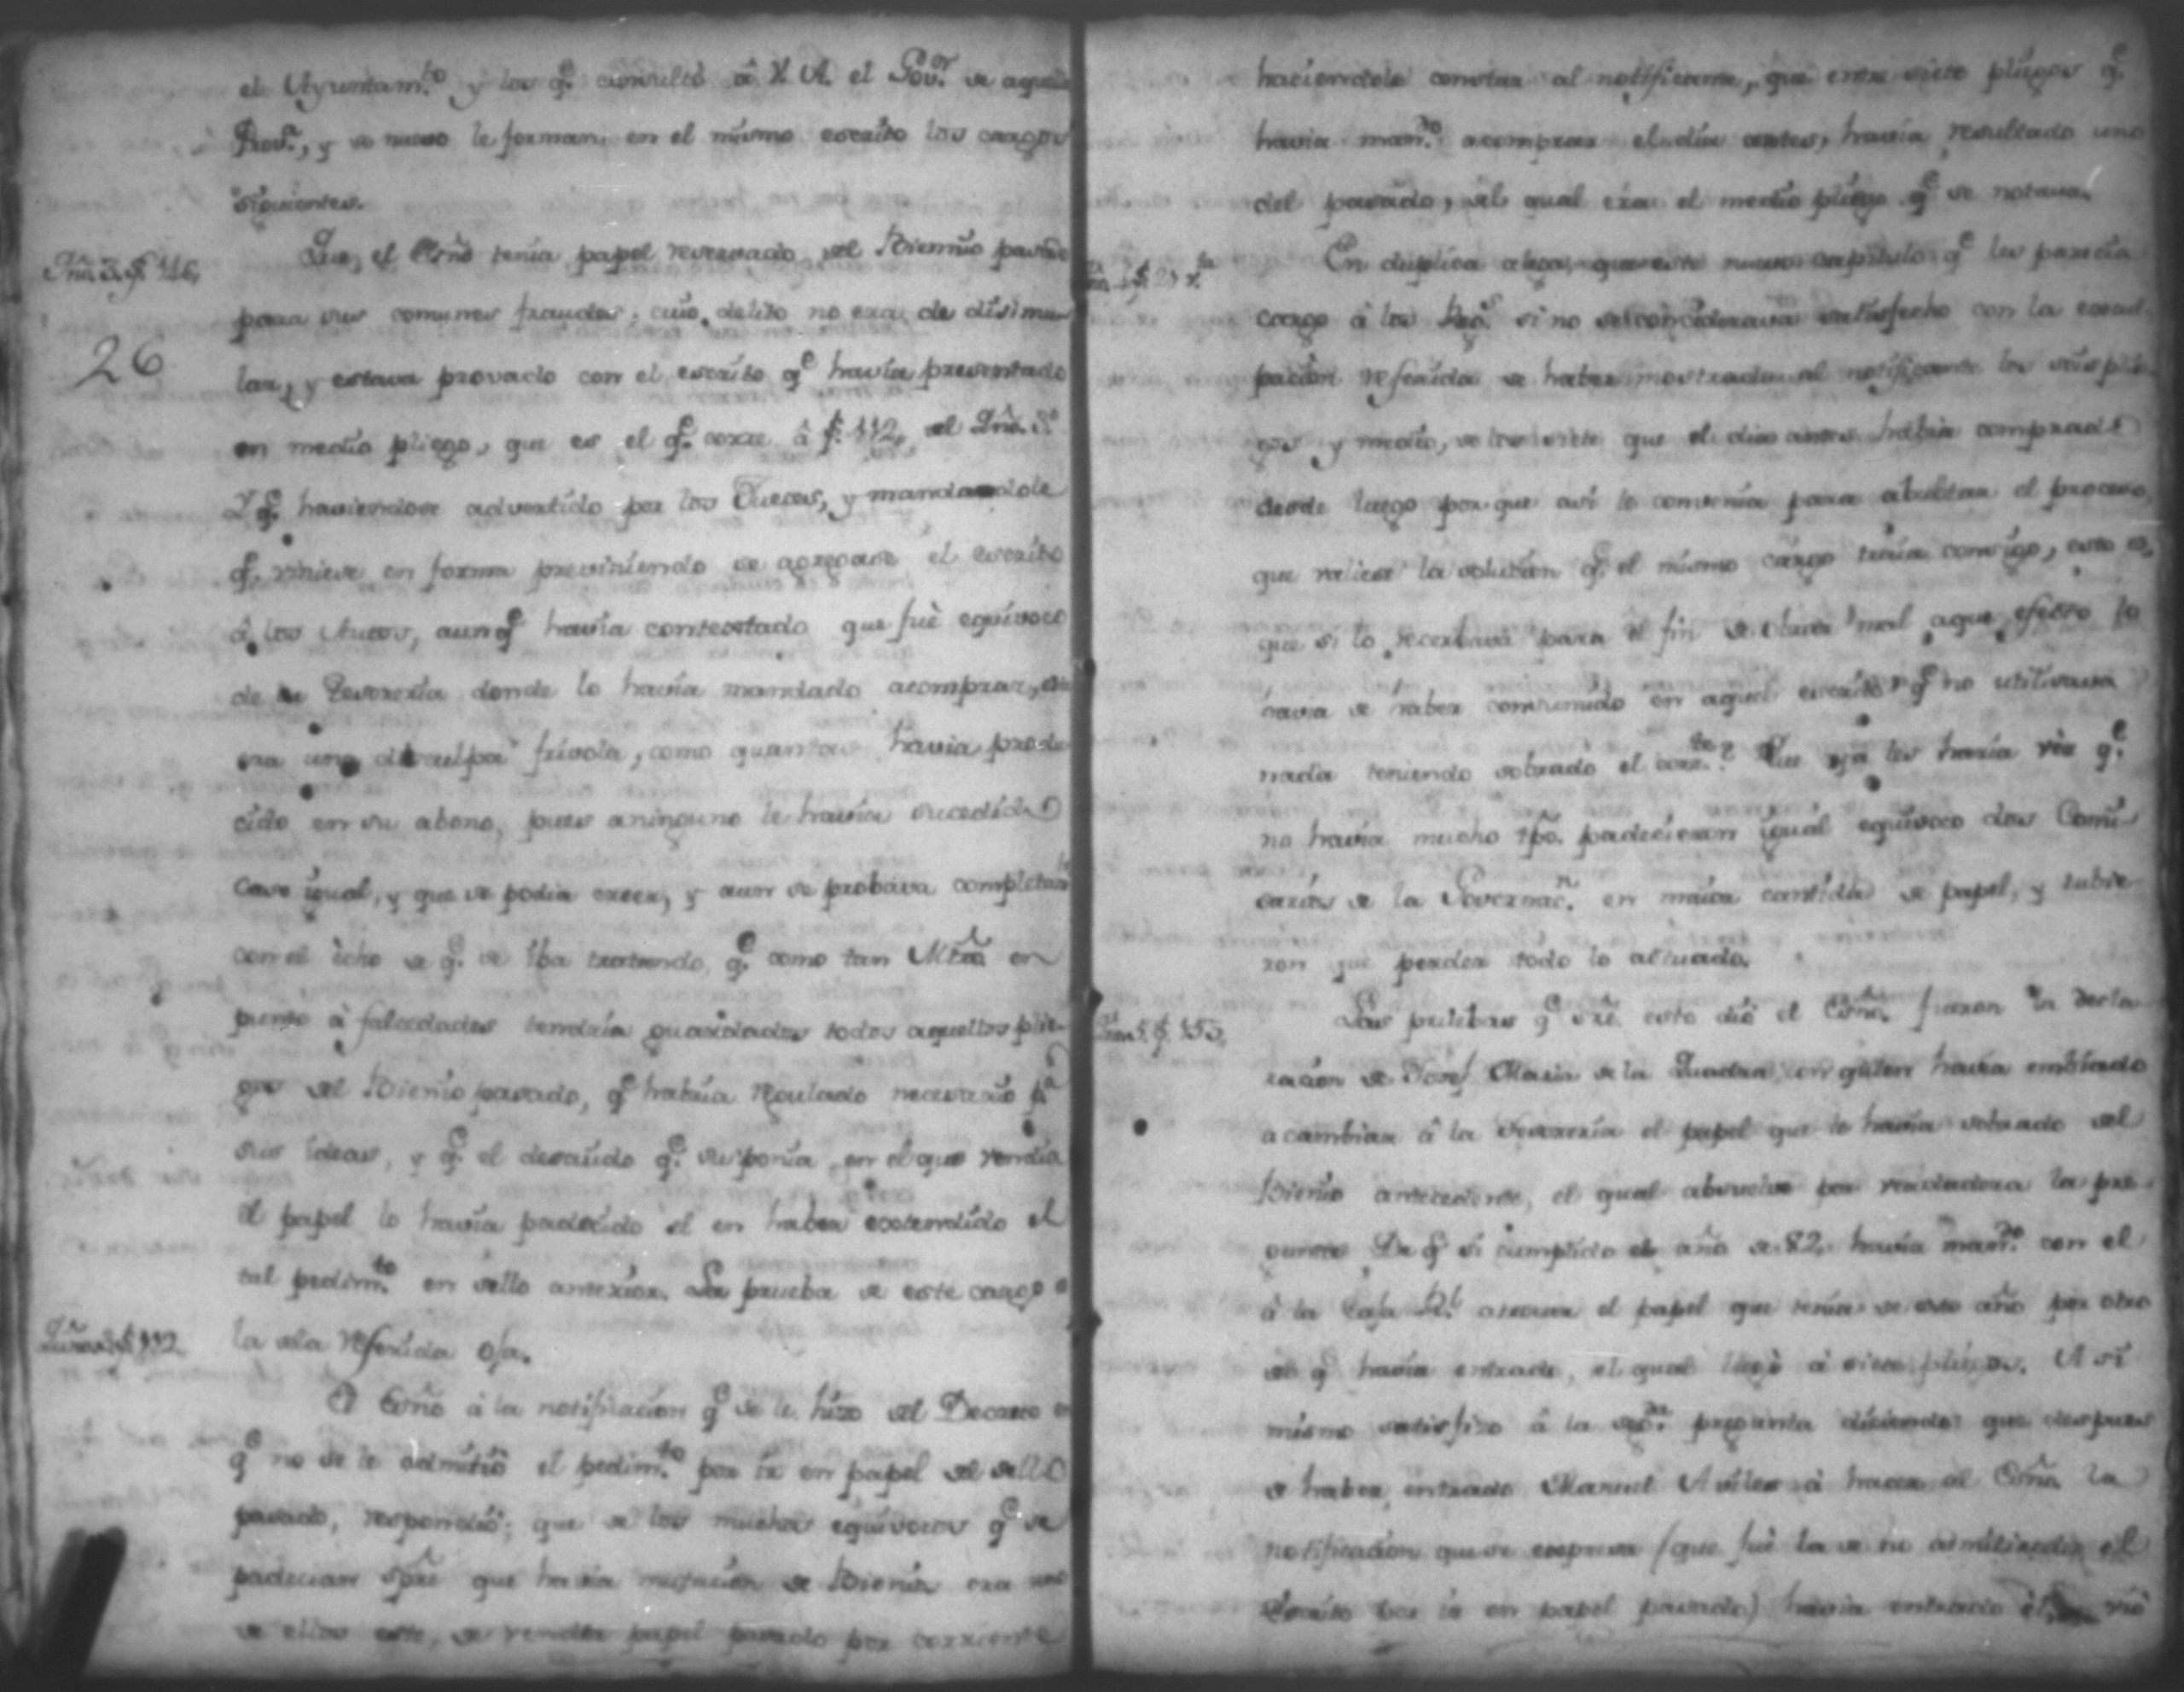 el Ayuntam.to y los q.e consultó â V. A. el Gov.or de aquella
Prov.a, y de nuevo le forman en el mismo escrito los cargos
siguientes.
Que el Essño tenía papel reservado del Biennio pasado
Qño. 3. f. 46.
para sus comunes fraudes; cuio delito no era de disimu-
26
lar, y estava provado con el escrito q.e havía presentado
en medio pliego, que es el q.e corre â f. 112, del Qño. 3.o
Y q.e haviendose advertido por los Jueces, y mandandole
q.e viniese en forma previniendo se agregase el escrito
â los Autos, aunq.e havía contestado que fuè equívoco
de la Tesorería donde lo havía mandado acomprar,
era una disculpa frívola, como quantas havia produ-
cido en su abono, pues aninguno le havía sucedido
caso igual, y que se podia creer, y aun se probáva
con el echo de q.e se iba tratando, q.e como tan Mtro en
punto â falsedades tendría guardados todos aquellos plie-
gos del Bienio pasado, q.e habría regulado necesario p.a
sus ideas, y q.e el descuido q.e suponía en el que vendía
el papel lo havía padecido el en haber extendido el
tal pedim.to en sello anterior. La prueba de este cargo
la dela referida
f. 112.
El Essño â la notificacion q.e se le hizo del Decreto
q.e no se le admitió el pedim.to por ir en papel del sello
pasado, respondió: que de los muchos equívocos q.e se
padecian spre que havía mutación de Bienio era uno
de ellos este, de vender papel pasado por corriente
haciendole constar al notificante, que entre siete pliegos q.e
havia man.do acomprar el día antes, havía resultado uno
del pasado, del qual era el medio pliego q.e se notava.
En duplica alega, que este nuevo capítulo q.e les parecía
cargo â los si no se considerava satisfecho con la excul-
pación referida de haber mostrado al notificante los seis plie-
gos y medio, de los siete que el dia antes había comprado
desde luego por que así le convenía para abultar el proceso,
que valiese la solución q.e el mismo cargo traía consigo, esto es,
que si lo recervava para el fin de obrar mal, aque efecto lo
havia de haber consumido en aquel escrito q.e no utilisava
nada teniendo sobrado el corr.te? Que oja les havía q.e
no havía mucho tpo. padecieron igual equívoco dos Comi-
sarios de la Governac.n en maior cantidad de papel, y tubie-
ron que perder todo lo actuado.
Las pruebas q.e sre esto dió el Essño fueron la decla-
f. 153.
racion de Josef Maria de la Quadra con quien havía embiado
a cambiar â la Tesorería el papel que le havía sobrado del
Bienio antecedente, el qual absuelve por verdadera la pre-
gunta De q.e si cumplido el año de 82. havía man.do con el
â la Caja R.l atrocar el papel que tenía de este año por otro
de q.e havía entrado, el qual llegó â siete pliegos. Asi
mismo satisfizo â la pregunta diciendo: que despues
de haber entrado Manuel Aviles â hacer al Essño la
notificación que se expresa (que fuè la de no admitirse el
Escrito por ir en papel pasado) havía entrado el, vió